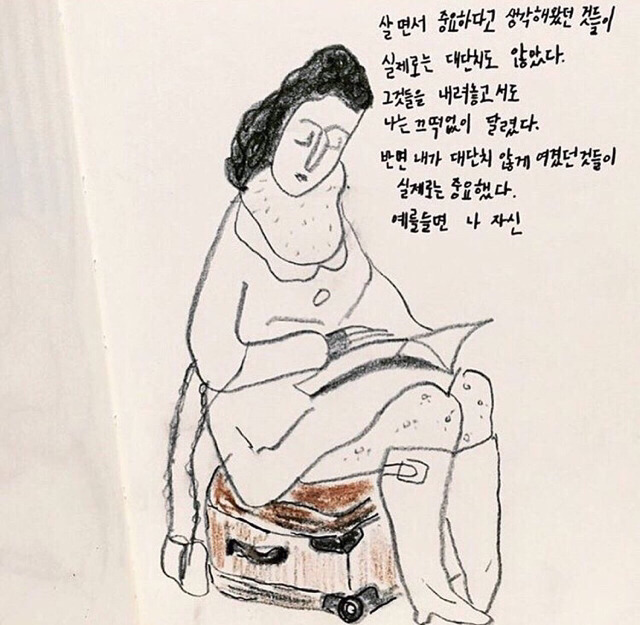 살면서 중요하다고 생각해왔던 것들이
실제로는 대단치도 않았다.
그것들을 내려놓고서도
나는 끄떡없이 달렸다.
반면 내가 대단치 않게 여겼던것들이
실제로는 중요했다.
예를들면 나 자신